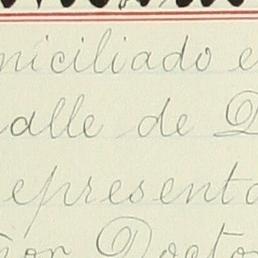 niciliado e
alle de D
epresenta
ñor Docto